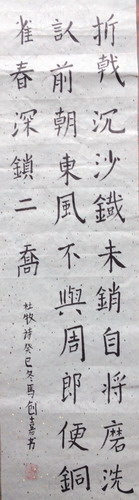 折戟沉沙鐵未銷自將磨洗
認前朝東風不與周郎便銅
雀春深鎖二喬
杜牧詩癸巳冬馬創嘉书